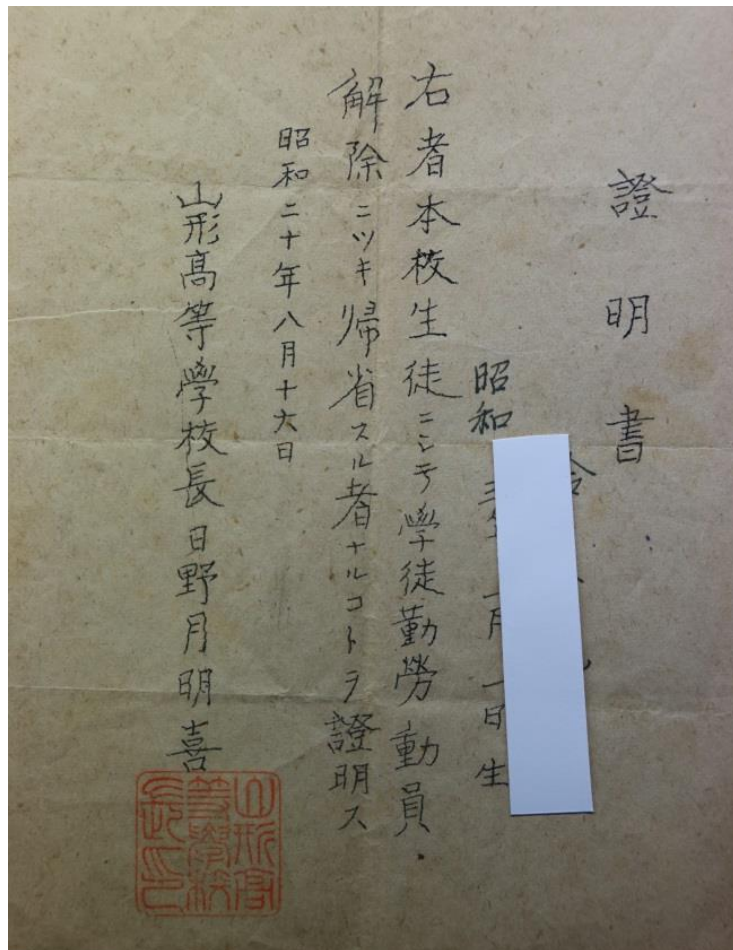 證明書
昭和 生
右者本校生徒ニシテ學徒勤勞動員
解除ニツキ帰省スル者ナルコトヲ證明ス
昭和二十年八月十六日
山形高等學校長日野月明喜
山形高等學校長印